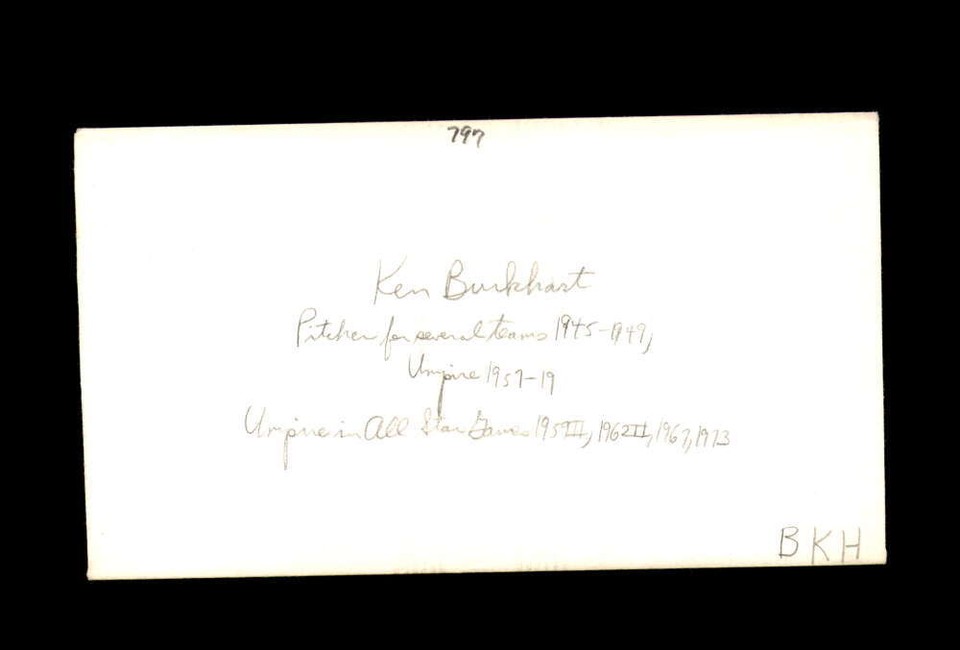 797
Ken Burkhart
Pitcher for several teams 1945-1949,
Umpire 1957-19
Umpire in All Star Games 1959II, 1962II, 1967, 1973
BKH